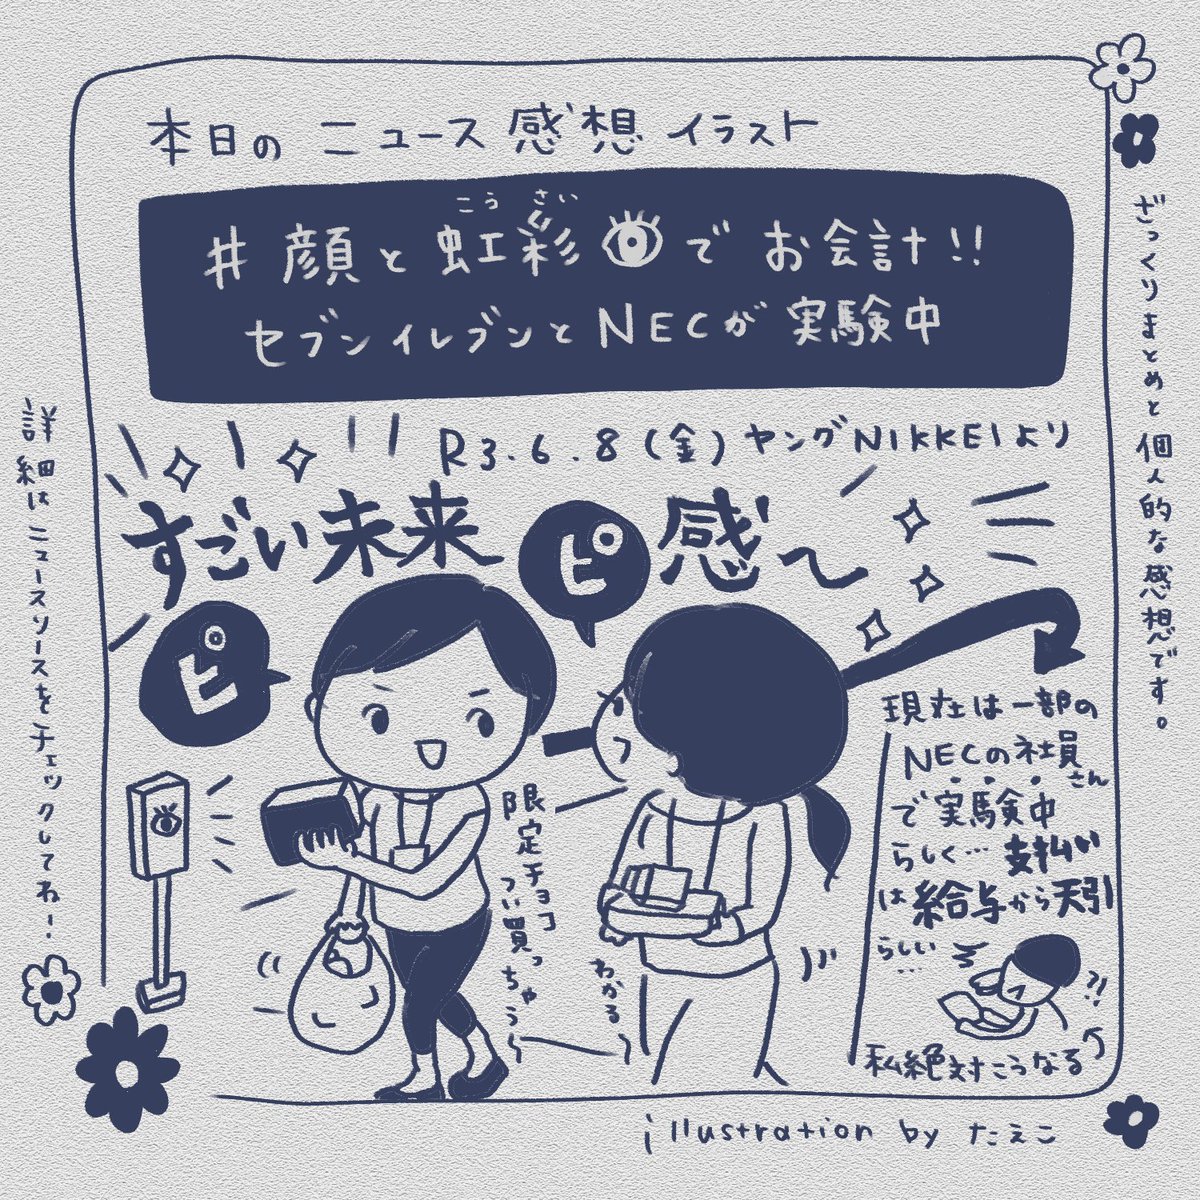 本日のニュース感想イラスト
こうさい
#顔と虹彩でお会計!!
セブンイレブンとNECが実験中
R3.6.8(金)ヤングNIKKEIより
すごい未来感〜
ピ
ピ
限定チョコ
つい買っちゃう〜
わかる〜
現在は一部の
NECの社員さん
で実験中
らしく…支払い
は給与から天引
らしい…
?!
私絶対こうなる
ざっくりまとめと個人的な感想です。
詳細はニュースソースをチェックしてね!
illustration by たえこ